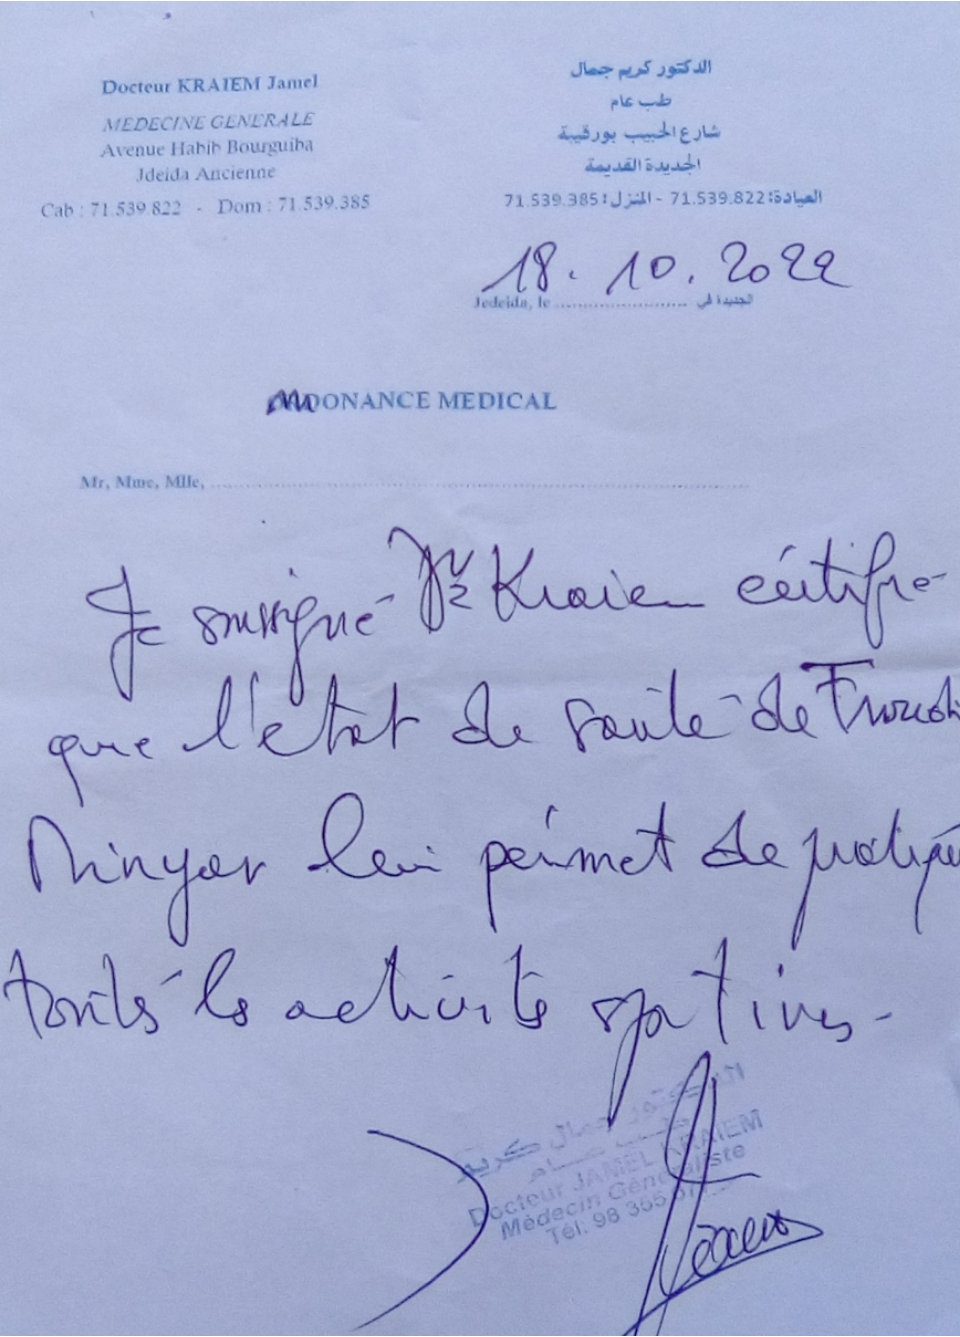 Docteur KRAIEM Jamel
MEDECINE GENERALE
Avenue Habib Bourguiba
Jdeida Ancienne
Cab : 71.539 822 - Dom : 71.539.385
الدكتور كريم جمال
طب عام
شارع الحبيب بورقيبة
الجديدة القديمة
العيادة: 71.539.822 - المنزل: 71.539.385
18. 10. 2022
Jedeida, le ........................... الجديدة في
DONANCE MEDICAL
Mr, Mme, Mlle, ................................................................
Je soussigné Dr Kraiem certifie
que l'état de santé de
Minyar lui permet de pratiquer
toutes les activités sportives -
الدكتور جمال كريم
طب عام
Docteur JAMEL KRAIEM
Médecin Généraliste
Tél: 98 365